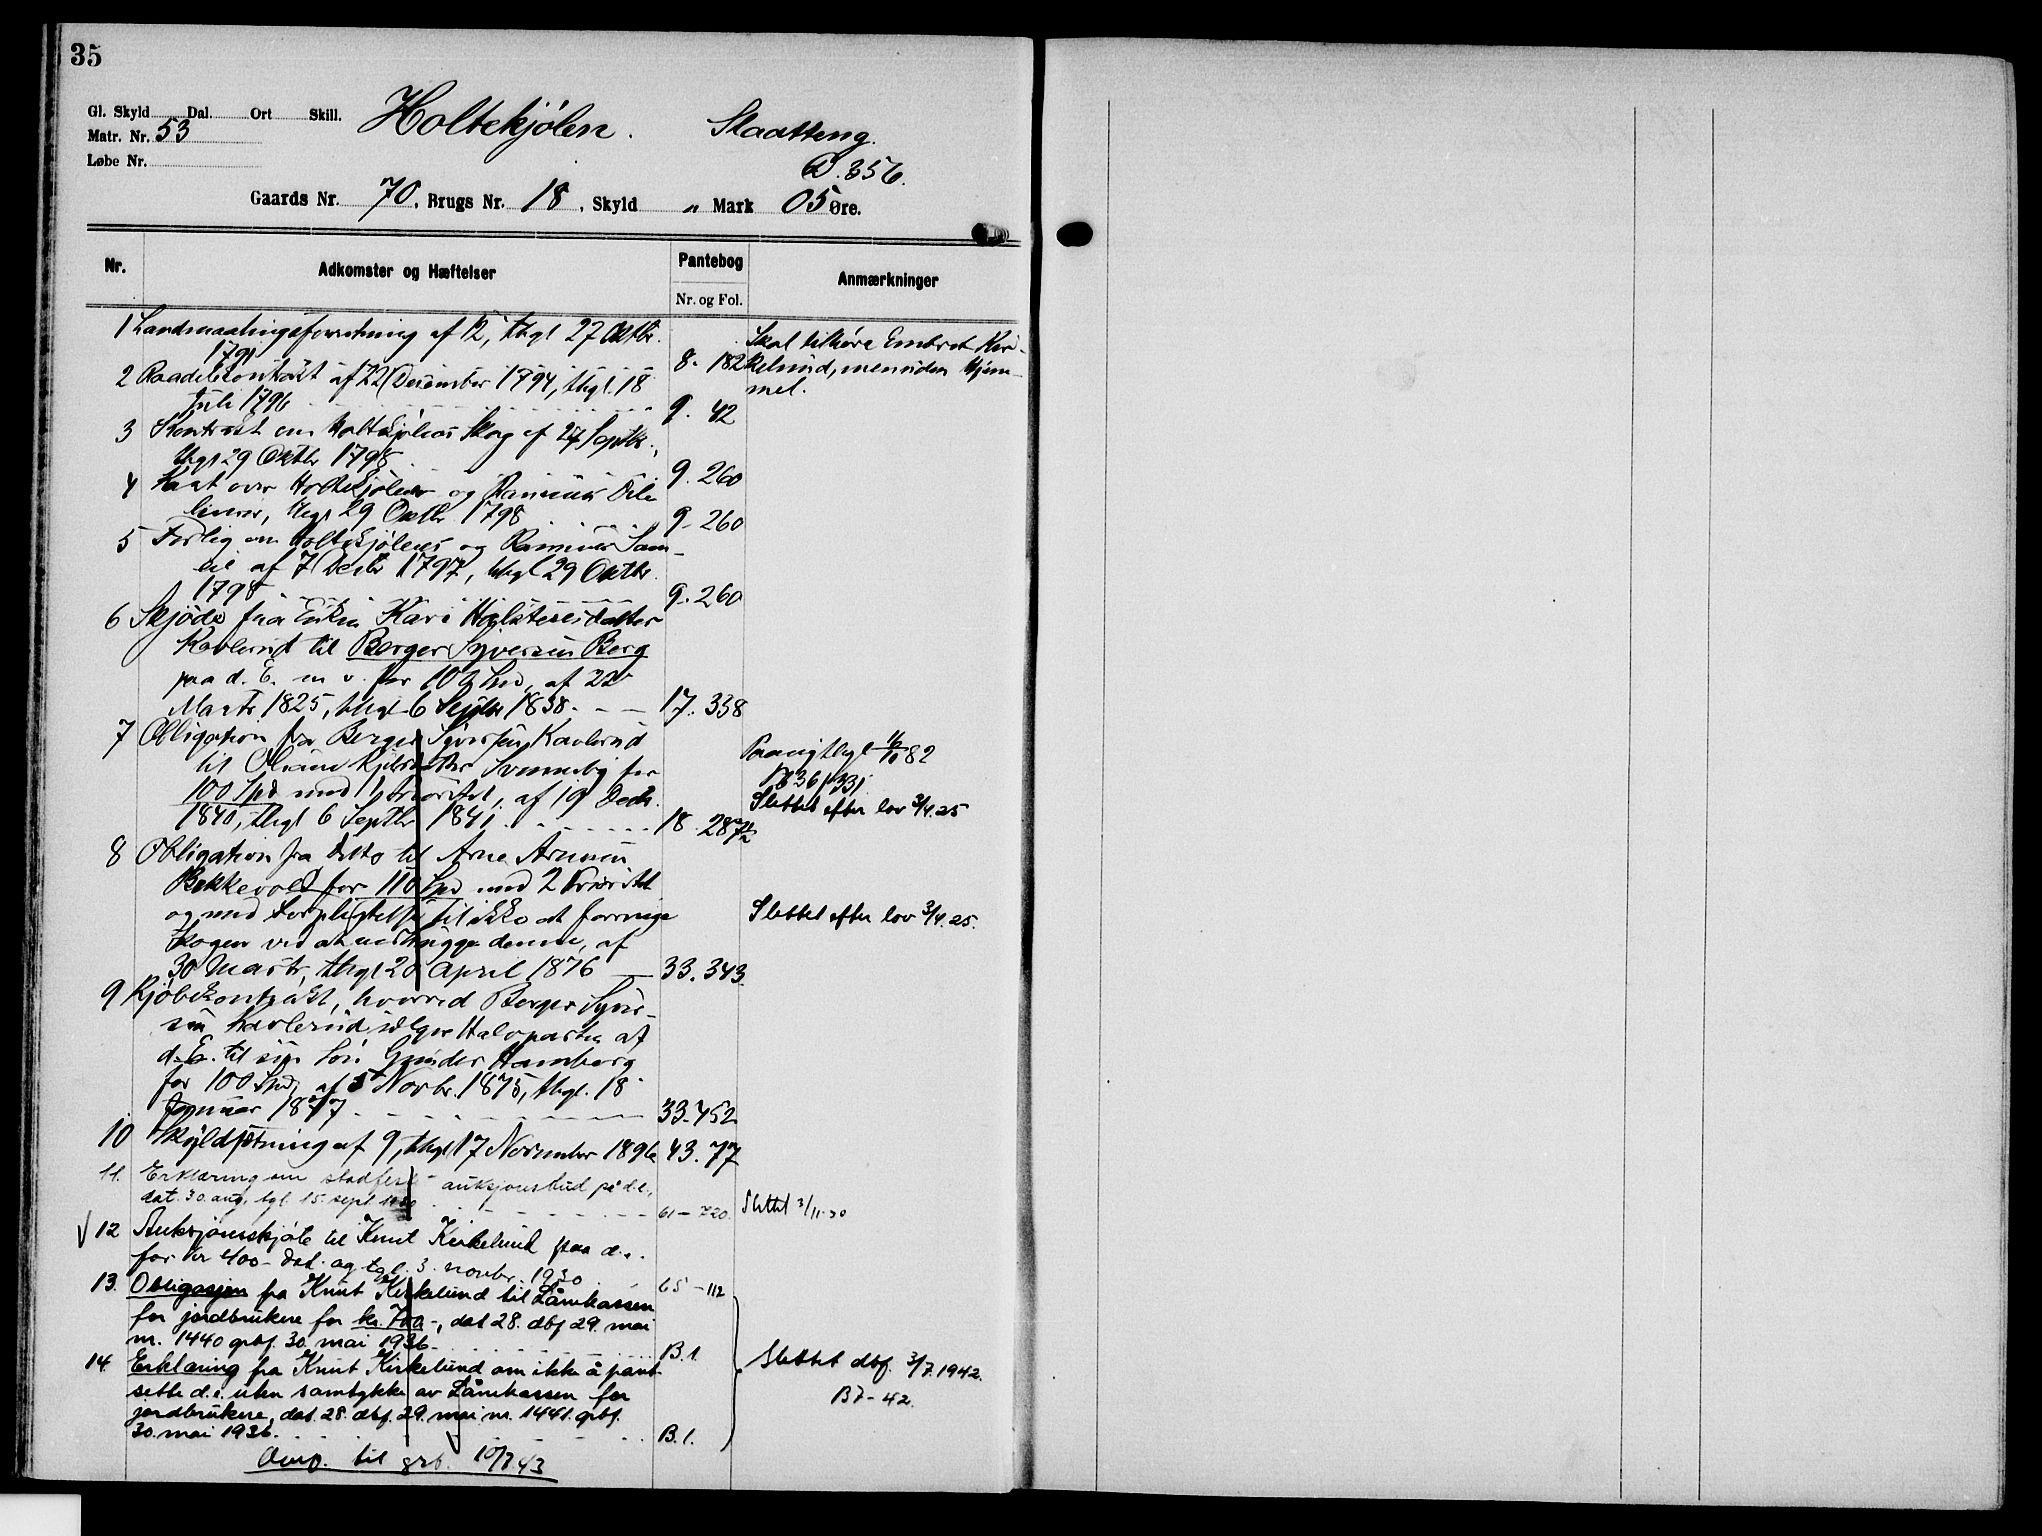 35
Gl. Skyld Dal. Ort Skill. Holtekjølen. Slaatteng.
Matr. Nr. 53
Løbe Nr. D. 356.
Gaards Nr. 70, Brugs Nr. 18, Skyld " Mark 05 Øre.
Nr. Adkomster og Hæftelser Pantebog Anmærkninger
Nr. og Fol.
1 Landmaalingsforretning af 12, thgl 27 Oktbr.
1791 8. 182
Skal tilhøre Embret Kir-
kelund, men uden Hjem-
mel.
2 Raadekontrakt af 22 December 1794, thgl. 18
Juli 1796 9. 42
3 Kontrakt om Holtekjølens Skog af 24 Septbr.,
thgl 29 Oktbr 1798 9. 260
4 over Holtekjølen og
thgl 29 Oktbr 1798 9. 260
5 Forlig om Holtekjølens og Sam-
af 7 Decbr 1797, thgl 29 Oktbr.
1798 9. 260
6 Skjøde fra Enken Kari Halstensdatter
Kavlerud til Berger Syversen Berg
paa d. E. m v. for 109 Spd, af 22
Marts 1825, thgl 6 Septbr 1838. 17. 338
7 Obligation fra Berger Syversen Kavlerud
til Oliane Svenneby for
100 Spd med 1 Prioritet, af 19 Decbr.
1840, thgl 6 Septbr 1841. 18. 287
Paany thgl 82
36
Slettet efter lov 3/4.25
8 Obligation fra Ditto til Arne Arnesen
Bekkevold for 110 Spd med 2 Prioritet
og med Forpligtelse til ikke at forringe
Skogen ved at udhugge denne, af
30 Marts, thgl 20 April 1876 33. 343.
Slettet efter lov 3/4.25.
9 Kjøbekontrakt, hvorved Berger Syver-
sen Kavlerud sælger Halvparten af
d. E. til sin Søn Gunder Hamberg
for 100 Spd, af 5 Novbr. 1875, thgl. 18
Januar 1877 33. 452
10 Skyldsetning af 9, thgl 17 November 1896 43. 77
11. Erklæring om stadfest- auksjonsbud på d.e.,
dat. 30. aug. tgl. 15. sept 1930 61 – 720. Slettet 3/11.30
12 Auksjonsskjøte til Knut Kirkelund paa d.e.
for kr 400 – dat. og tgl. 3. novbr. 1930 65 – 112
13. Obligasjon fra Knut Kirkelund til Lånekassen
for jordbrukere for kr. 700 –, dat 28. dbf 29. mai
nr. 1440 grbf. 30. mai 1936. B. 1.
14. Erklæring fra Knut Kirkelund om ikke å pant-
sette d.e. uten samtykke av Lånekassen for
jordbrukere, dat. 28. dbf. 29. mai nr. 1441. grbf.
30. mai 1936. B. 1.
Slettet dbf. 3/7.1942.
B7 – 42.
til grb. 10/7 43